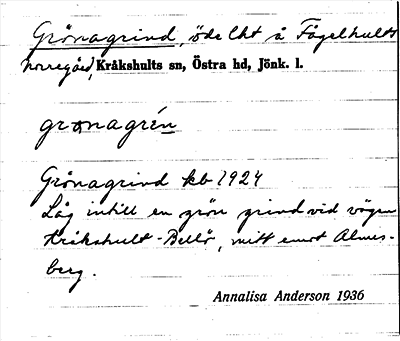 Grönagrind, öde lht å Fågelhults
norregård, Kråkshults sn, Östra hd, Jönk. l.
grønagrén
Grönagrind kb 1924
Låg intill en grön grind vid vägen
Kråkshult - Bellö, mitt emot Almes-
berg.
Annalisa Anderson 1936